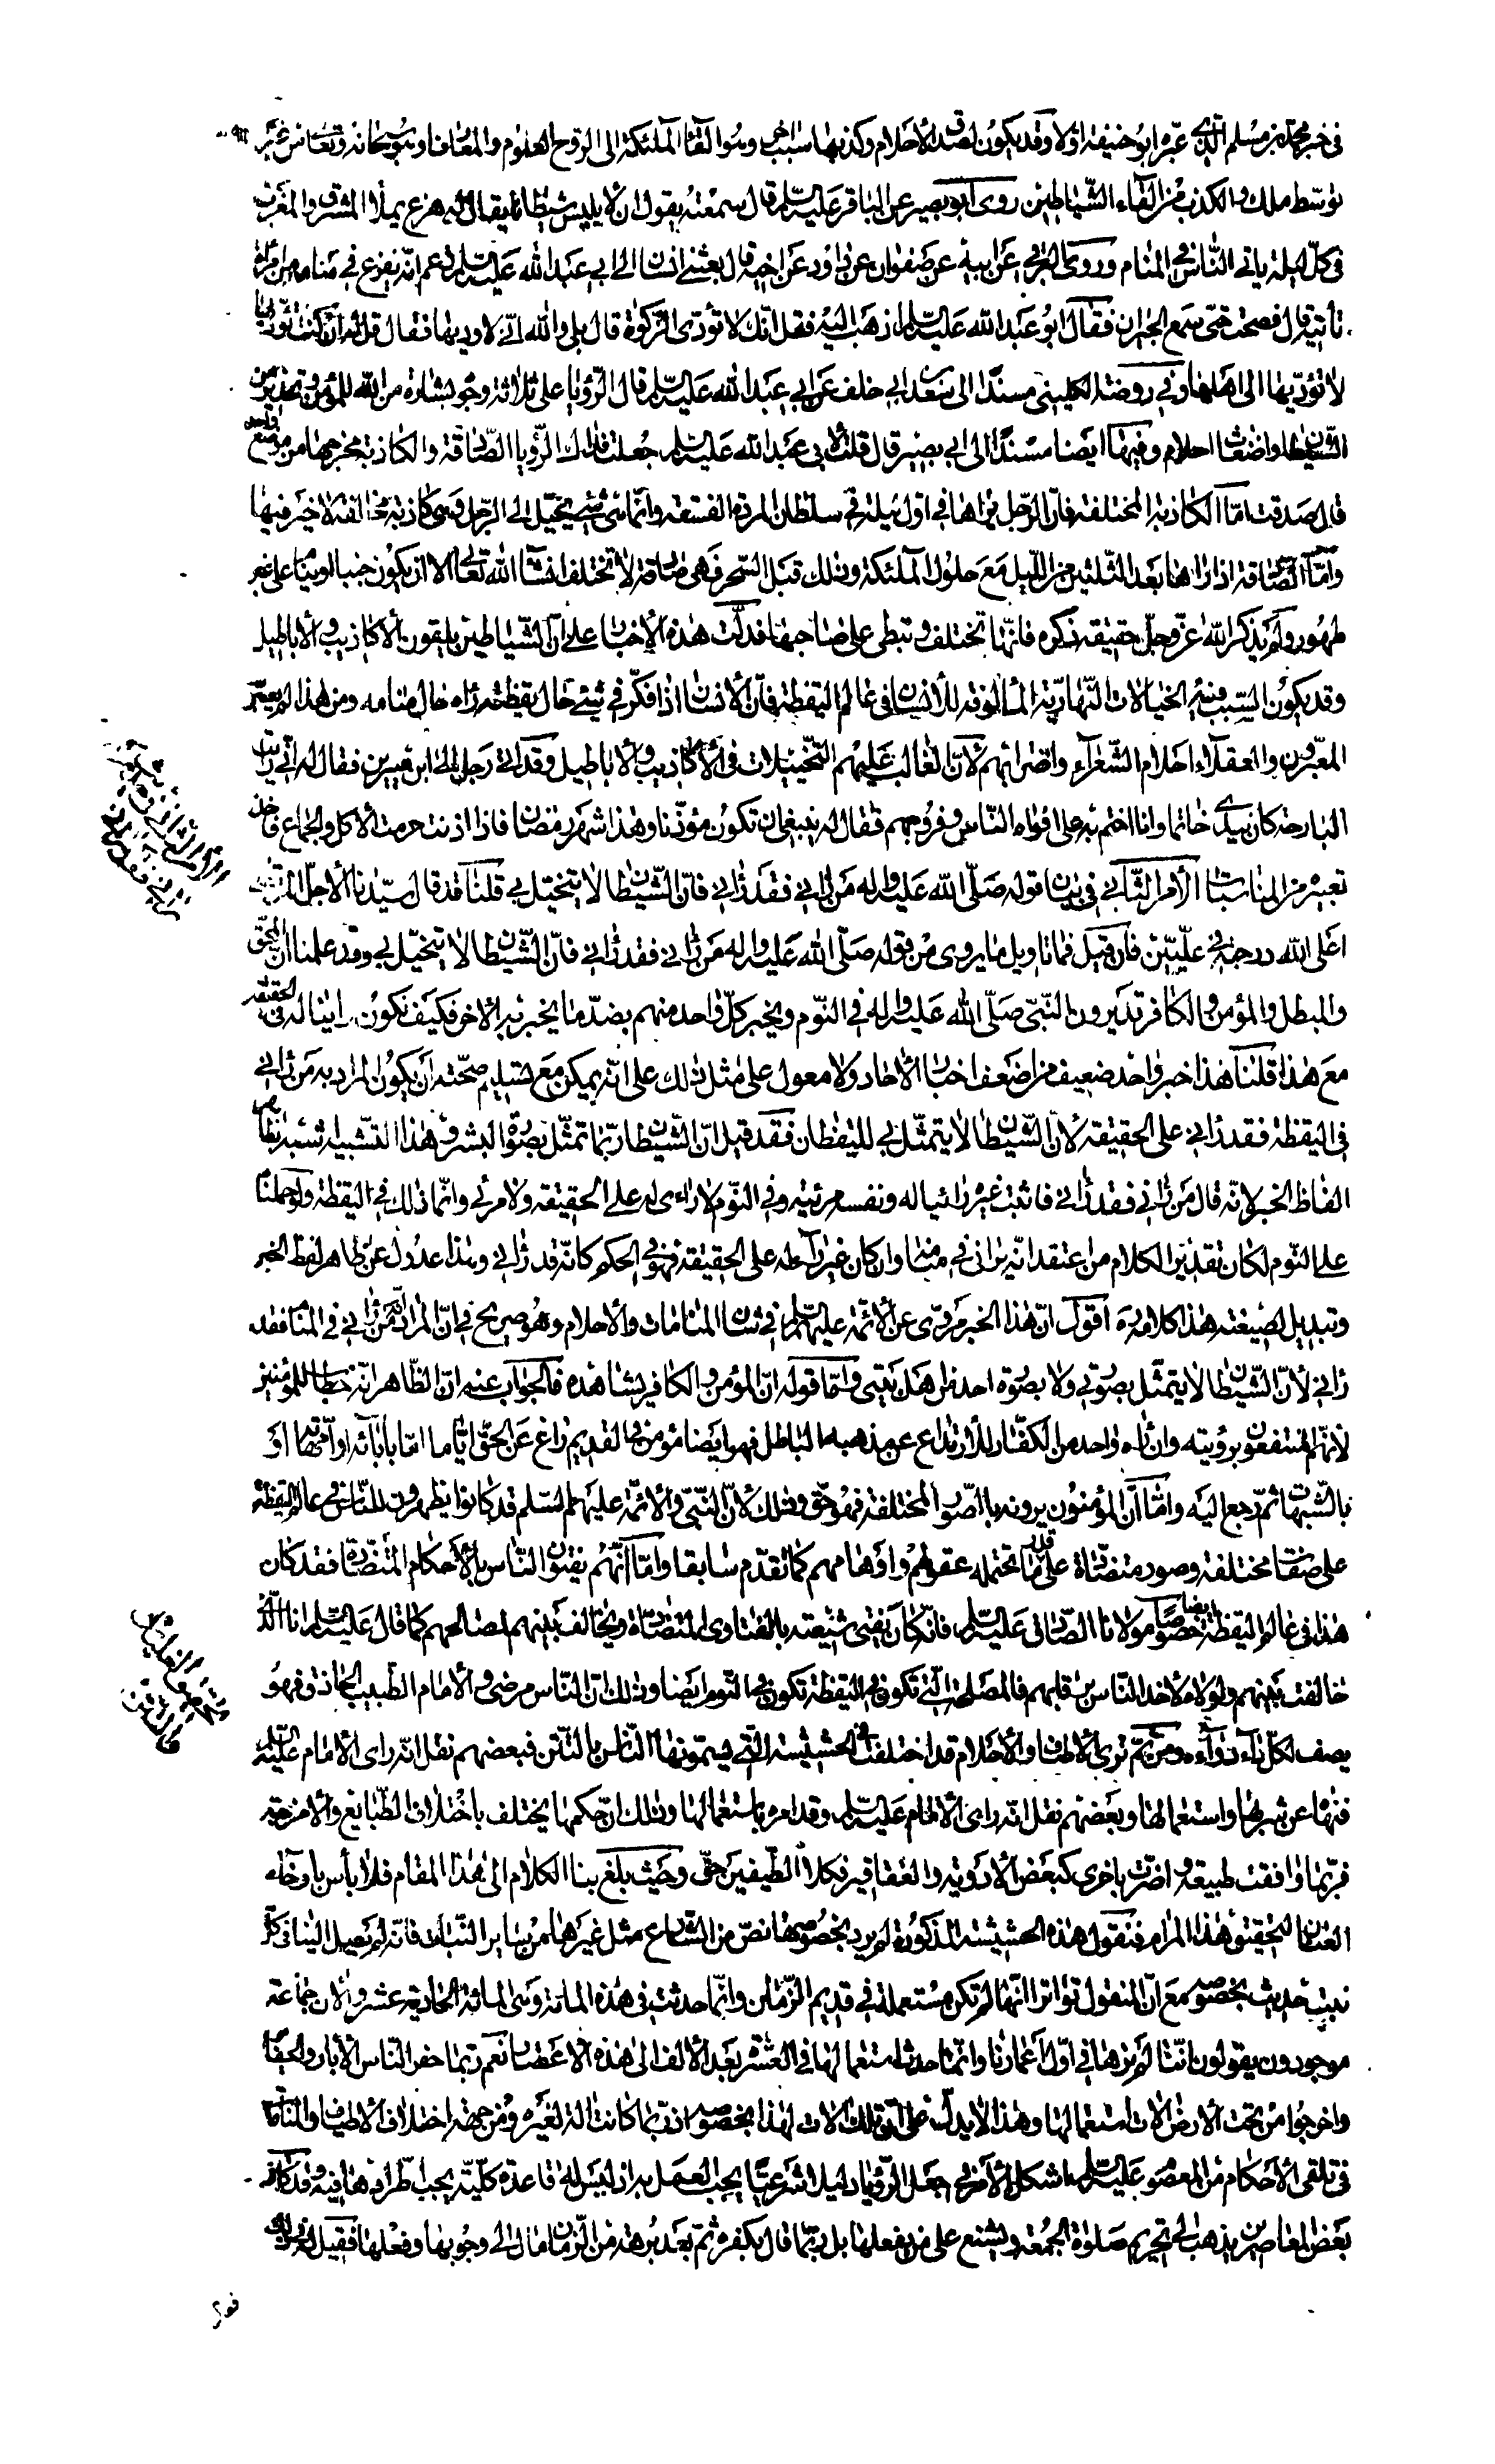 في خبر محمد بن مسلم الذي عبّره ابو حنيفة اولا وقد يكون لصدق الأحلام وكذبها سبب اخر وهو القاء الملئكة الى الروح العلوم والمعارف او هو سبحانه وتعالى من غير
توسّط ملك والكذب من القاء الشّياطين روى ابو بصير عن الباقر عليه السّلم قال سمعته يقول ان لابليس شيطانا يقال له هزع يملأ المشرق والمغرب
في كلّ ليلة ياتي النّاس في المنام وروى البرقي عن ابيه عن صفوان عن داود عن اخيه قال بعثني انسان الى ابي عبد الله عليه السّلم زعم انّه يفزع في منامه من امرأة
تأتيه قال فصحت حتى سمع الجيران فقال ابو عبد الله عليه السّلم اذهب اليه فقل انّك لا تؤدّى الزّكوة قال بلى والله انّي لاوديها فقال قل له ان كنت تؤدّيها
لا تؤدّيها الى اهلها وفي روضة الكليني مسندًا الى سعد بن ابي خلف عن ابي عبد الله عليه السّلم قال الرّؤيا على ثلاثة وجوه بشارة من الله للمؤمن وتحذير من
الشّيطان واضغاث احلام وفيها ايضا مسندًا الى ابي بصير قال قلت لأبي عبد الله عليه السّلم جعلت فداك الرّؤيا الصّادقة والكاذبة مخرجهما من موضع واحد
قال صدقت امّا الكاذبة المختلفة فانّ الرّجل يراها في اوّل ليلة في سلطان المردة الفسقة وانّما هي شيء يخيّل الى الرّجل وهي كاذبة مخالفة لا خير فيها
وامّا الصّادقة اذا راها بعد الثّلثين من اللّيل مع حلول الملئكة وذلك قبل السّحر فهي صادقة لا تختلف انشآء الله تعالى الا ان يكون جنبا او ينام على غير
طهور ولم يذكر الله عزّ وجلّ حقيقة ذكره فانّها تختلف وتبطي على صاحبها فدلّت هذه الأخبار على انّ الشّياطين يلقون الأكاذيب والأباطيل
وقد يكون السّبب فيه الخيالات النّهاريّة المألوفة للأنسان في عالم اليقظة فانّ الأنسان اذا فكّر في شيء حال يقظته راه حال منامه ومن هذا لم يعتبر
المعبّرون والعقلاء احلام الشّعرآء واضرابهم لأنّ الغالب عليهم التّخييلات في الأكاذيب والأباطيل وقد اتى رجل الى ابن سيرين فقال له انّي رايت
البارحة كان بيدي خاتما وانا اختم به على افواه النّاس وفروجهم فقال له ينبغي ان تكون مؤذّنا وهذا شهر رمضان فاذا اذنت حرمت الأكل والجماع فاخذ
تعبيره من المناسبات الأمر الثّاني في بيان قوله صلّى الله عليه واله من راني فقد راني فانّ الشّيطان لا يتخيّل بي قلنا قد قال سيّدنا الأجلّ المرتضى
اعلى الله درجته في علّيّين فان قيل فما تاويل ما يروى من قوله صلّى الله عليه واله من راني فقد راني فانّ الشّيطان لا يتخيّل بي وقد علمنا انّ المحقّ
والمبطل والمؤمن والكافر قد يرون النّبيّ صلّى الله عليه واله في النّوم ويخبر كلّ واحد منهم بضدّ ما يخبر به الأخر فكيف تكون رائيا له في الحقيقة
مع هذا قلنا هذا خبر واحد ضعيف من اضعف اخبار الأحاد ولا معول على مثل ذلك على انّه يمكن مع تسليم صحّته ان يكون المراد به من راني
في اليقظة فقد راني على الحقيقة لأنّ الشّيطان لا يتمثّل بي لليقظان فقد قيل انّ الشّيطان ربّما تمثّل بصورة البشر وهذا التّشبيه اشبه بظاهر
الفاظ الخبر لانّه قال من راني فقد راني فاثبت غيره رائيا له ونفسه مرئية وفي النّوم لا رائي له على الحقيقة ولا مرئي وانّما ذلك في اليقظة ولو حملنا
على النّوم لكان تقدير الكلام من اعتقد انّه يراني في منامه وان كان غير رآء له على الحقيقة فهو في الحكم كانّه قد راني وهذا عدول عن ظاهر لفظ الخبر
وتبديل لصيغته هذا كلامه ره اقول انّ هذا الخبر مروّى عن الأئمّة عليهم السّلم في شان المنامات والأحلام وهو صريح في انّ المراد من راني في المنام فقد
راني لأنّ الشّيطان لا يتمثّل بصورتي ولا بصورة احد من اهل بيتي وامّا قوله انّ المؤمن والكافر يشاهده فالجواب عنه انّ الظّاهر انّه خطاب للمؤمنين
لأنّهم المنتفعون برؤيته وان راه واحد من الكفّار للأرتداع عن مذهبه الباطل فهو ايضا مؤمن في القديم زاغ عن الحقّ ايّاما امّا بابائه او امّهاته او
بالشّبهات ثمّ رجع اليه وامّا انّ المؤمنون يرونه بالصّور المختلفة فهو حقّ وذلك لأنّ النّبيّ والأئمّة عليهم السّلم قد كانوا يظهرون للنّاس في عالم اليقظة
على صفات مختلفة وصور متضادّة على قدر ما تحتمله عقولهم واوهامهم كما تقدّم سابقا وامّا انّهم يفتون النّاس بالأحكام المتضادّة فقد كان
هذا في عالم اليقظة ايضا خصوصًا مولانا الصّادق عليه السّلم فانّه كان يفتى شيعته بالفتاوى المتضادّة ويخالف بينهم لمصالحهم كما قال عليه السّلم انا الّذي
خالفت بينهم ولولاه لأخذ النّاس برقابهم فالمصلحة الّتي تكون في اليقظة تكون في النّوم ايضا وذلك انّ النّاس مرضى والأمام الطّبيب الحاذق فهو
يصف لكلّ دآء دوآءه ومن ثمّ ترى الأطياف والأحلام قد اختلفت في الحشيشة الّتي يسمّونها النّاس بالتّتن فبعضهم نقل انّه راى الأمام عليه السّلم
فنهاه عن شربها واستعمالها وبعضهم نقل انّه راى الأمام عليه السّلم وقد امره باستعمالها وذلك انّ حكمها يختلف باختلاف الطّبايع والأمزجة
فربّما وافقت طبيعة واضرّت باخرى كبعض الأدوية والعقاقير فكلا الطّيفين حقّ وحيث بلغ بنا الكلام الى هذا المقام فلا بأس بارخآء
العنان لتحقيق هذا المرام فنقول هذه الحشيشة المذكورة لم يرد بخصوصها نصّ من الشّارع مثل غيرها من ساير النّباتات فانّه لم يصل الينا في كلّ
نبت حديث بخصوصه مع انّ المنقول تواترا انّها لم تكن مستعملة في قديم الزّمان وانّما حدثت في هذه المائة وهي المائة الحادية عشر والان جماعة
موجودون يقولون انّنا لم نرها في اوّل اعمارنا وانّما حدث استعمالها في العشر بعد الألف الى هذه الاعصار نعم ربّما حفر النّاس الأبار والحفاير
واخرجوا من تحت الأرض الات استعمالها وهذا لا يدلّ على انّ تلك الالات لهذا بخصوصه اذ ربّما كانت الة لغيره ومن جهة اختلاف الأطياف والمنامات
في تلقى الأحكام من المعصوم عليه السّلم اشكل الأمر في جعل الرّؤيا دليلا شرعيّا يجب العمل به اذ ليس له قاعدة كلّية يجب اطّرادها فيه وقد كان
بعض المعاصرين يذهب الى تحريم صلوة الجمعة ويشنع على من يفعلها بل ربّما قال بكفره ثمّ بعد برهة من الزّمان مال الى وجوبها وفعلها فقيل له في ذلك